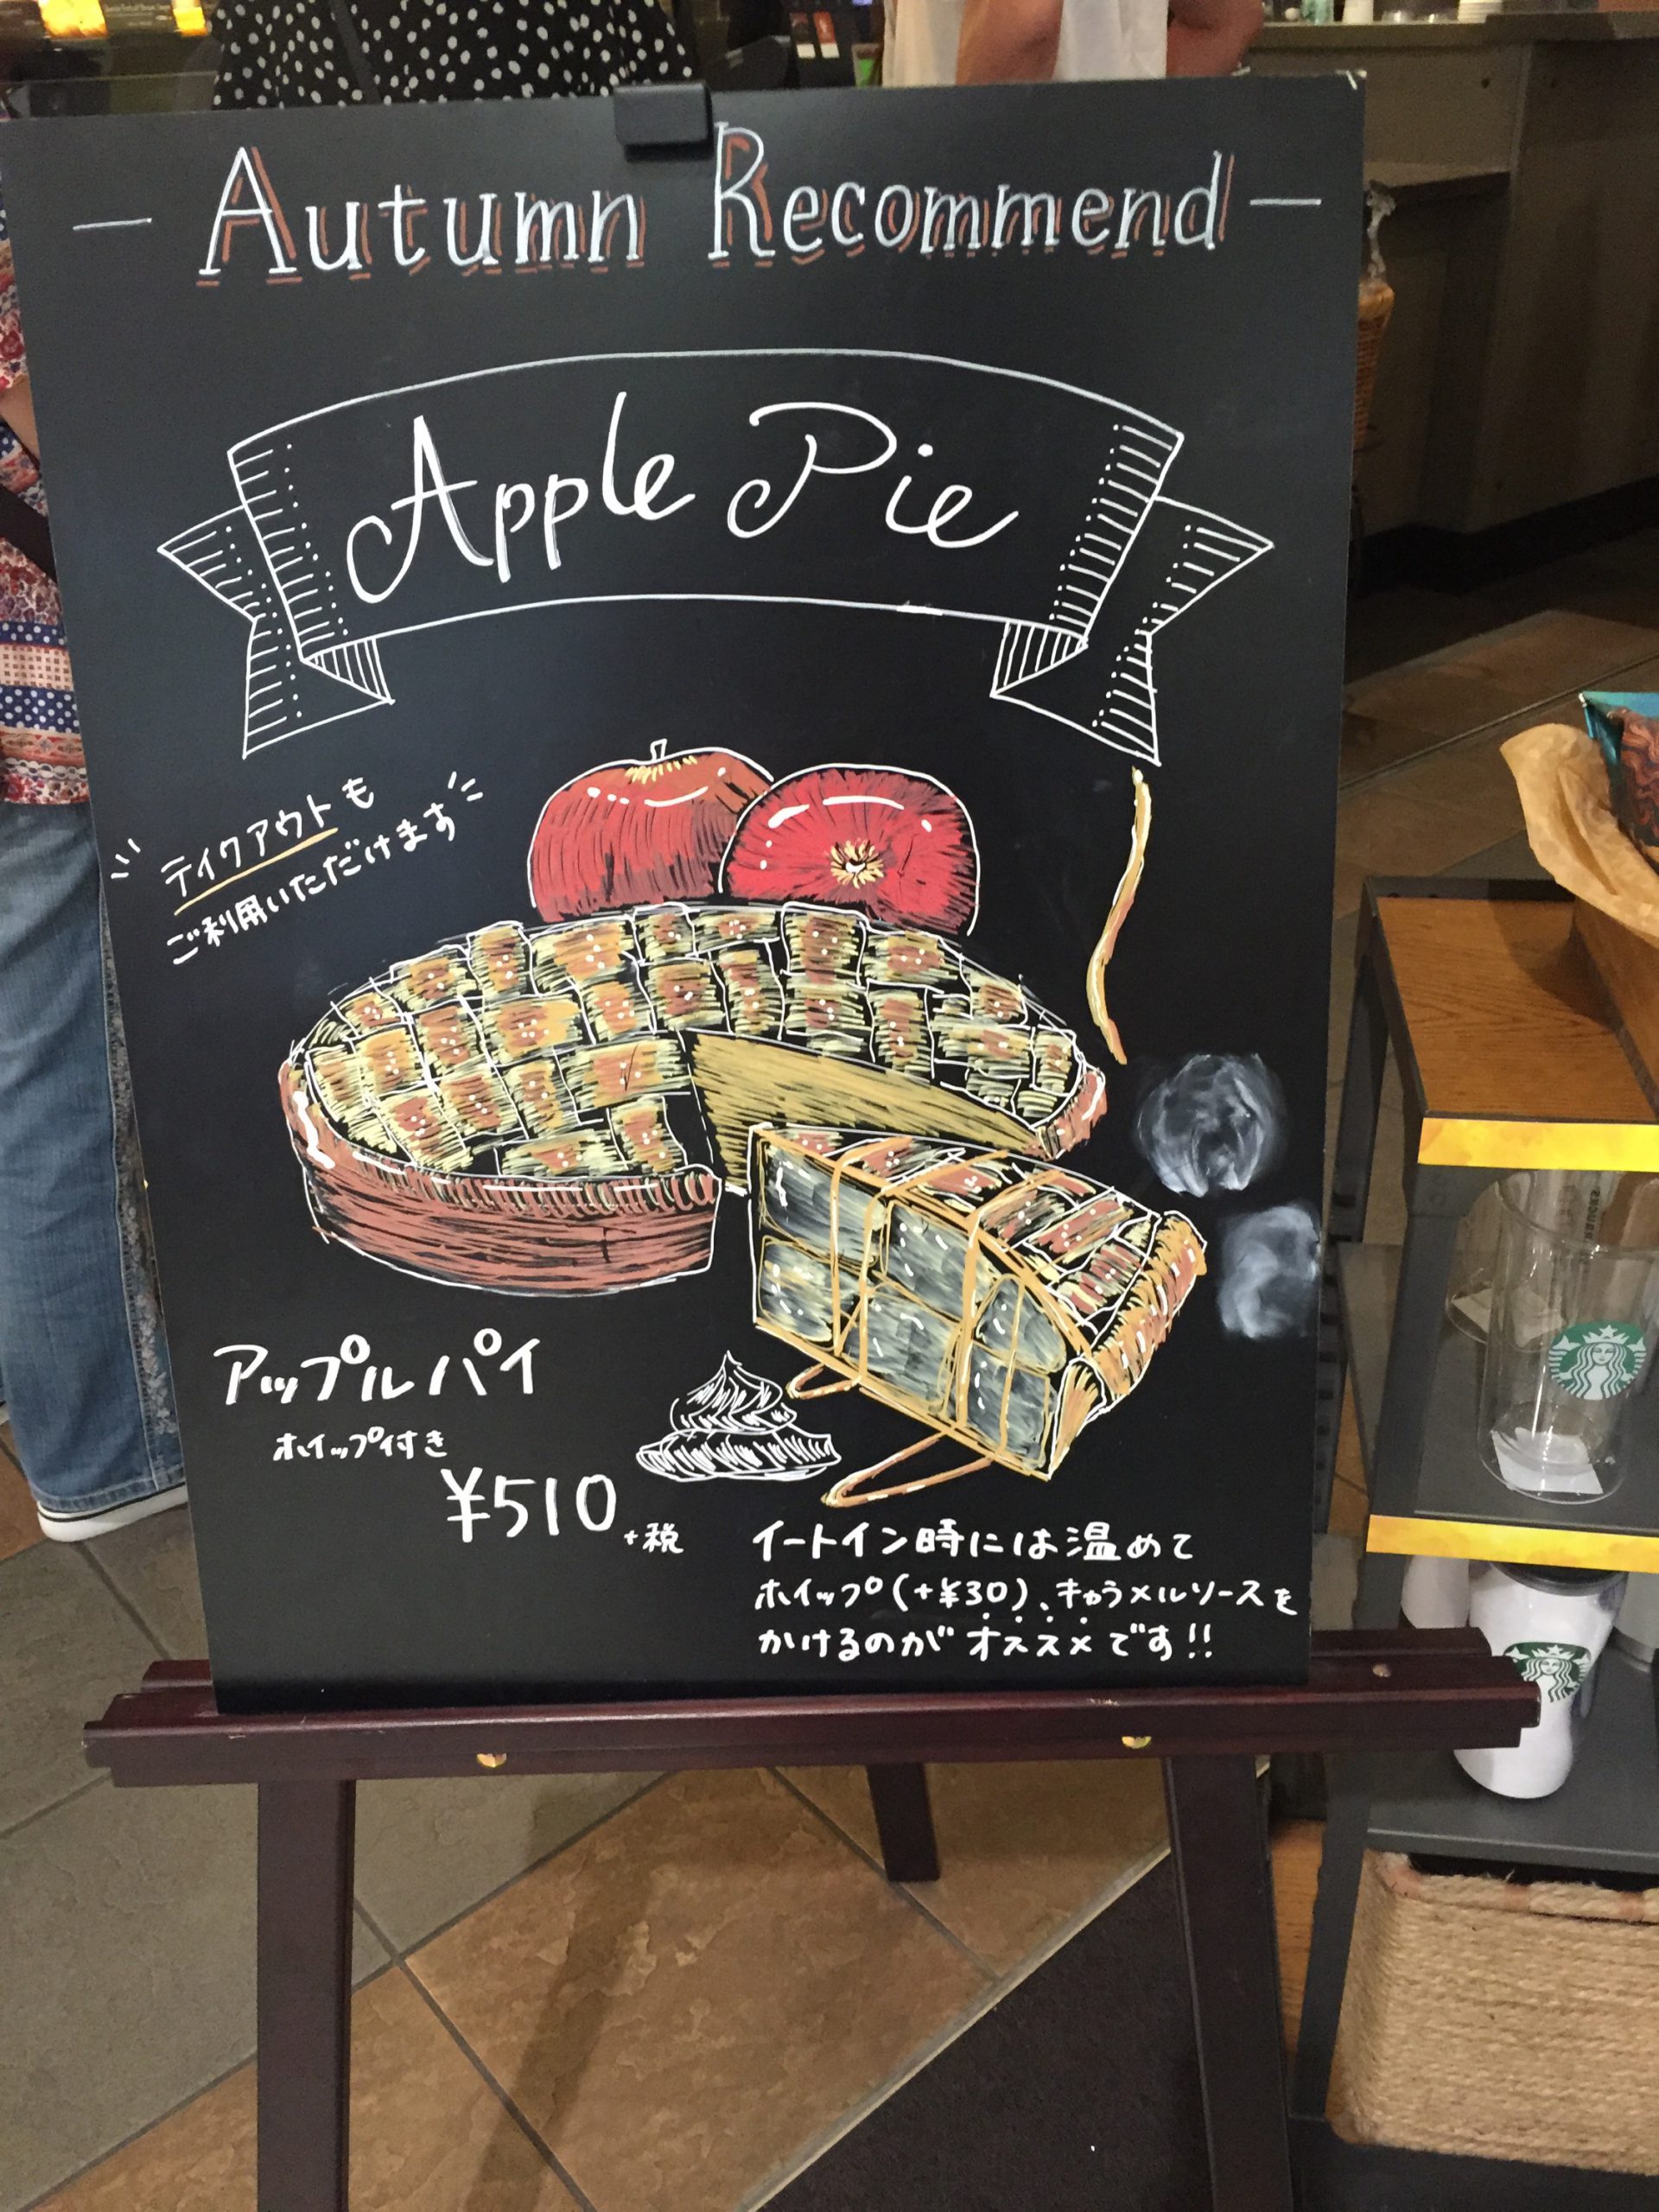 — Autumn Recommend —
Apple Pie
テイクアウトも
ご利用いただけます
アップルパイ
ホイップ付き
¥510+税
イートイン時には温めて
ホイップ(+¥30)、キャラメルソースを
かけるのがオススメです!!